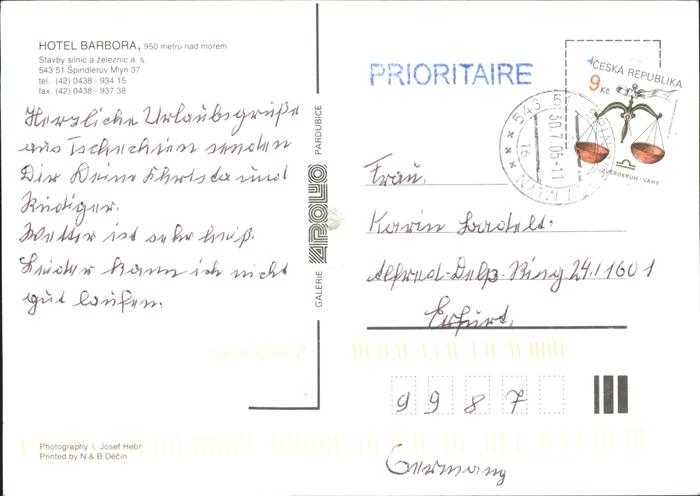 HOTEL BARBORA, 950 metrů nad mořem
Stavby silnic a železnic a. s.
543 51 Špindlerův Mlýn 37
tel. (42) 0438 - 934 15
fax. (42) 0438 - 937 38
Herzliche Urlaubsgrüße
aus Tschechien senden
Dir Deine Christa und
Rüdiger.
Wetter ist sehr heiß.
Leider kann ich nicht
gut laufen.
Photography © Josef Hebr
Printed by N & B Děčín
GALERIE APOLLO PARDUBICE
PRIORITAIRE
ČESKÁ REPUBLIKA
9 Kč
ZVĚROKRUH - VÁHY
543 51
30.7.05-11
16
Frau
Karin
Alfred-Delp-Ring 24/1601
Erfurt
99087
9 9 8 7
Germany